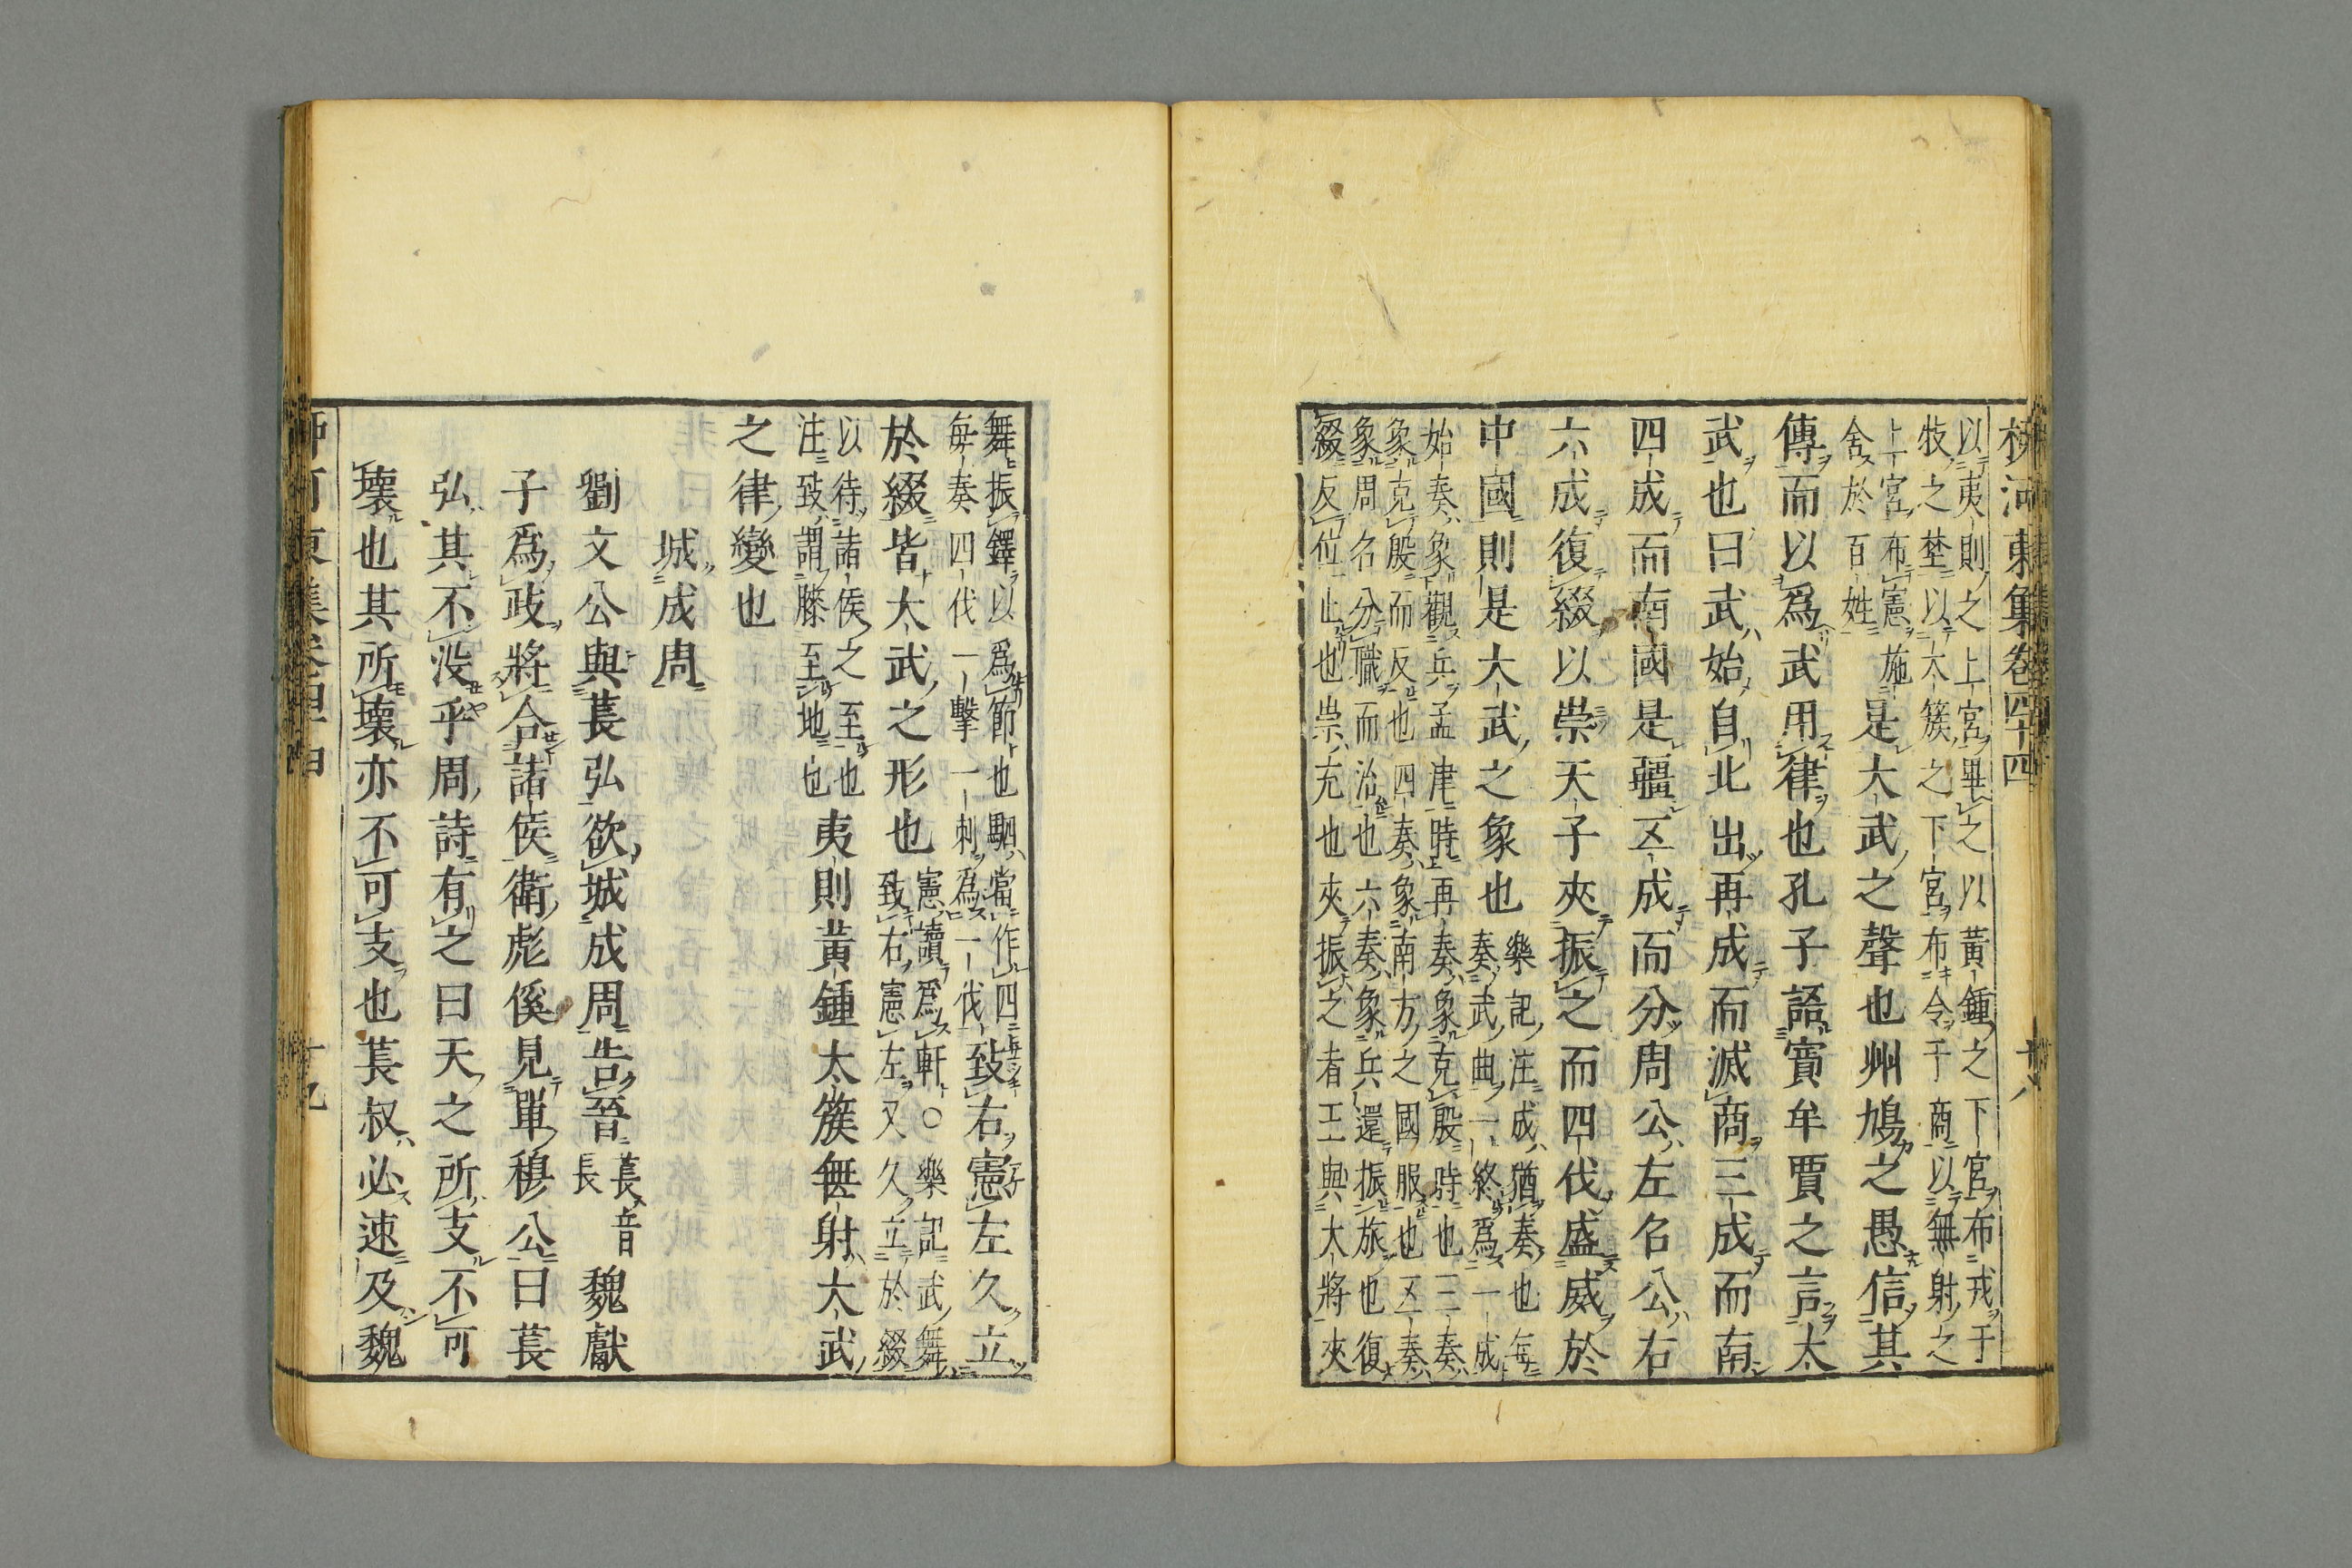 柳河東集卷四十四
十八
以夷則之上宮畢之以黃鍾之下宮布戎于
牧之埜以太簇之下宮布令于商以無射之
上宮布憲施
舍於百姓
是大武之聲也州鳩之愚信其
傳而以爲武用律也孔子語賓牟賈之言大
武也曰武始自北出再成而滅商三成而南
四成而南國是疆五成而分周公左召公右
六成復綴以崇天子夾振之而四伐盛威於
中國則是大武之象也
樂記注成猶奏也每
奏武曲一終爲一成
始奏象觀兵孟津時再奏象克殷時也三奏
象克殷而反也四奏象南方之國服也五奏
象周召分職而治也六奏象兵還振旅也復
綴反位止也崇充也夾振之者王與大將夾
舞振鐸以爲節也駟當作四
每奏四伐一擊一刺爲一伐
致右憲左久立
於綴皆大武之形也
憲讀爲軒○樂記武舞
致右憲左又久立於綴
以待諸侯之至也
注致謂膝至地也
夷則黃鍾太簇無射大武
之律變也
城成周
劉文公與萇弘欲城成周告晉
萇音
長
魏獻
子爲政將合諸侯衛彪傒見單穆公曰萇
弘其不沒乎周詩有之曰天之所支不可
壞也其所壞亦不可支也萇叔必速及魏
十九